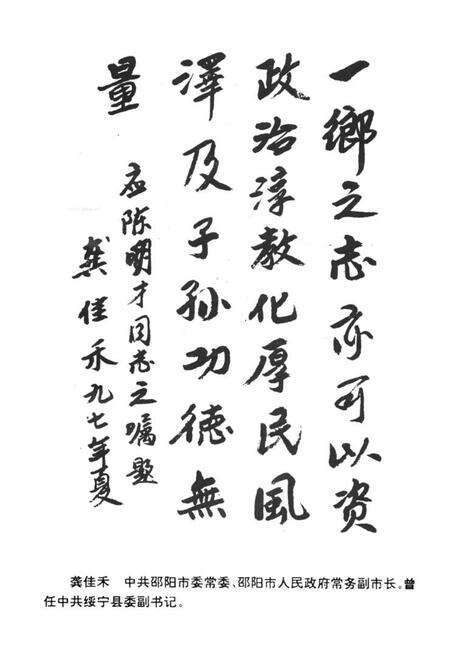 一鄉之志亦可以资
政治淳教化厚民風
澤及子孙功德無
量
应陈明才同志之嘱题
龚佳禾九七年夏
龚佳禾 中共邵阳市委常委、邵阳市人民政府常务副市长。曾
任中共绥宁县委副书记。